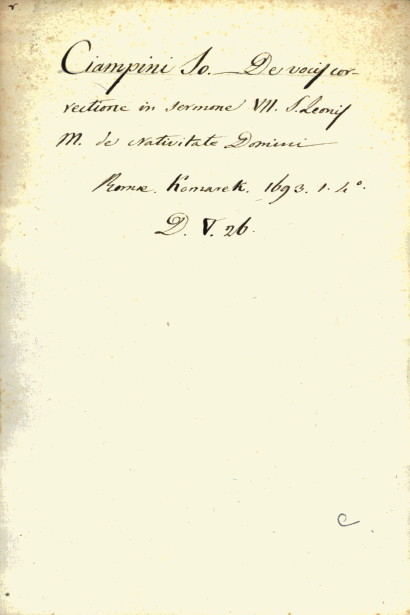 Ciampini Jo. — De vocis cor-
rectione in sermone VII. S. Leonis
M. de Nativitate Domini —
Romæ. Komarek. 1693. 1. 4°.
D. V. 26.
C